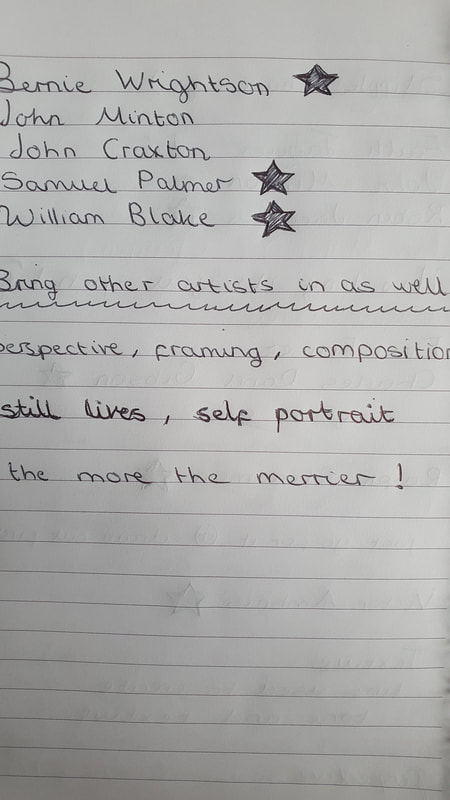 Bernie Wrightson
John Minton
John Craxton
Samuel Palmer
William Blake
Bring other artists in as well
perspective, framing, composition
still lives, self portrait
the more the merrier!